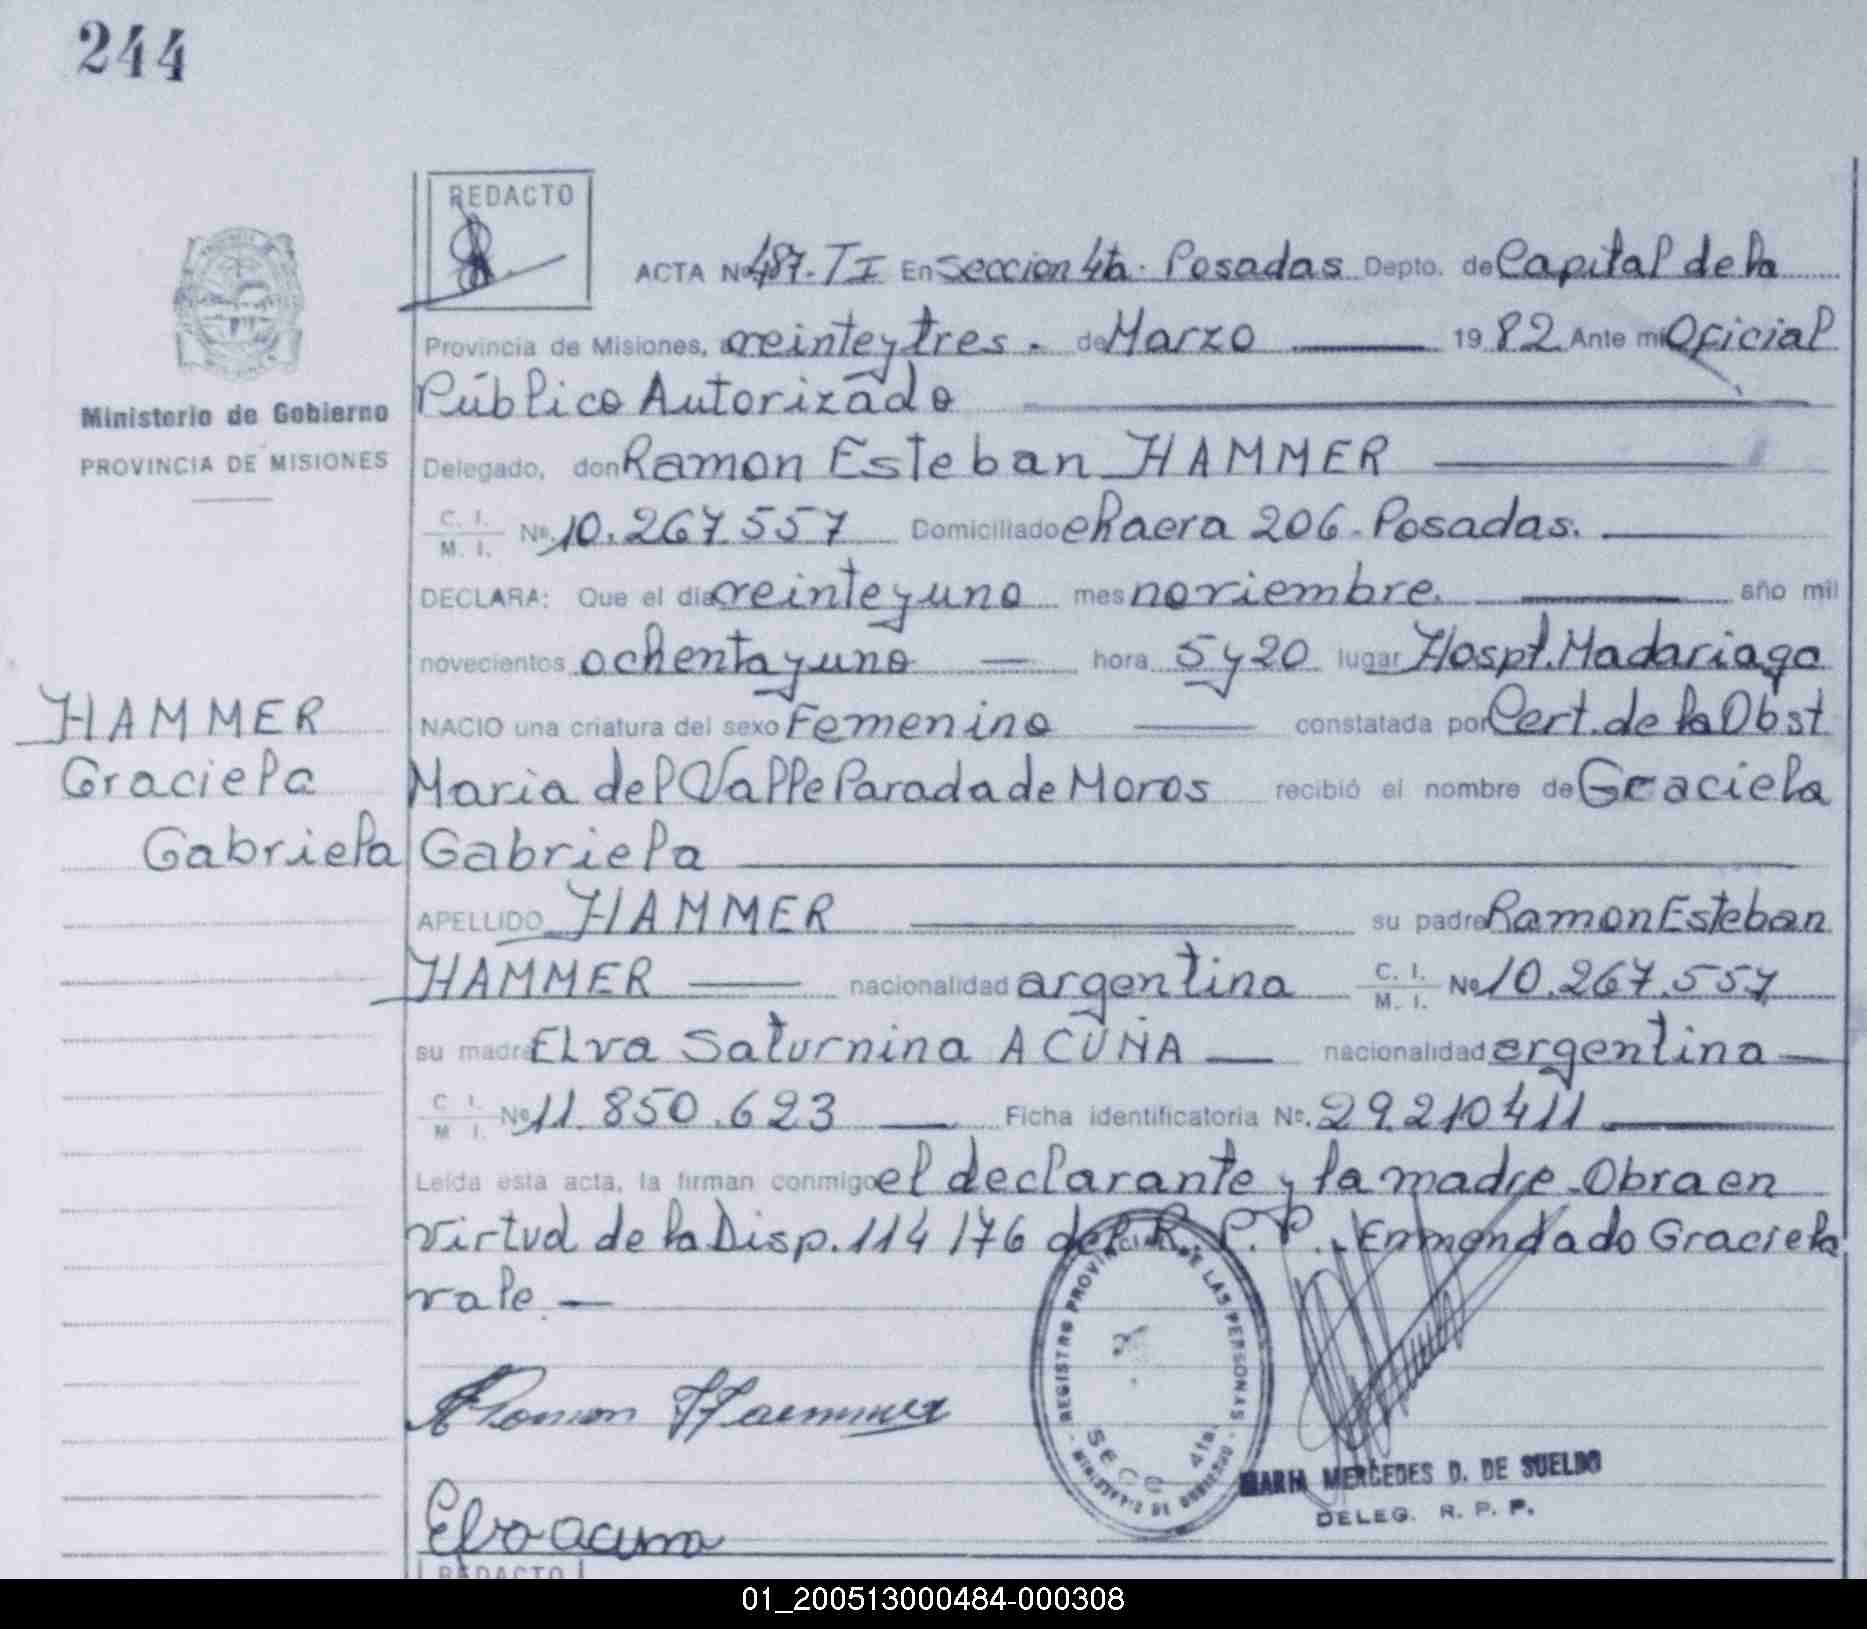 244
REDACTO
ACTA Nº 487. T I En Seccion 4ta. Posadas Depto. de Capital de la
Provincia de Misiones, a veinte y tres. de Marzo 1982 Ante mi Oficial
Ministerio de Gobierno
PROVINCIA DE MISIONES
Público Autorizado
Delegado, don Ramon Esteban HAMMER
C. I. M. I. Nº. 10.267.557 Domiciliado chacra 206. Posadas.
DECLARA: Que el día veinte y uno mes noviembre. año mil
novecientos ochenta y uno hora 5 y 20 lugar Hospt. Madariaga
HAMMER
Graciela
Gabriela
NACIO una criatura del sexo Femenino constatada por Cert. de la Obst
Maria del Valle Parada de Moros recibió el nombre de Graciela
Gabriela
APELLIDO HAMMER su padre Ramon Esteban
HAMMER nacionalidad argentina C. I. M. I. Nº 10.267.557
su madre Elva Saturnina ACUÑA nacionalidad argentina
C. I. M. I. Nº 11.850.623 Ficha identificatoria Nº. 29.210411
Leída esta acta, la firman conmigo el declarante y la madre. Obra en
virtud de la Disp. 114/76 del R. P. P. Enmendado Graciela
vale.
Ramon Hammer
REGISTRO PROVINCIAL DE LAS PERSONAS
SECC 4ta.
MARIA MERCEDES D. DE SUELDO
DELEG. R. P. P.
Elva acuna
REDACTO
01_200513000484-000308